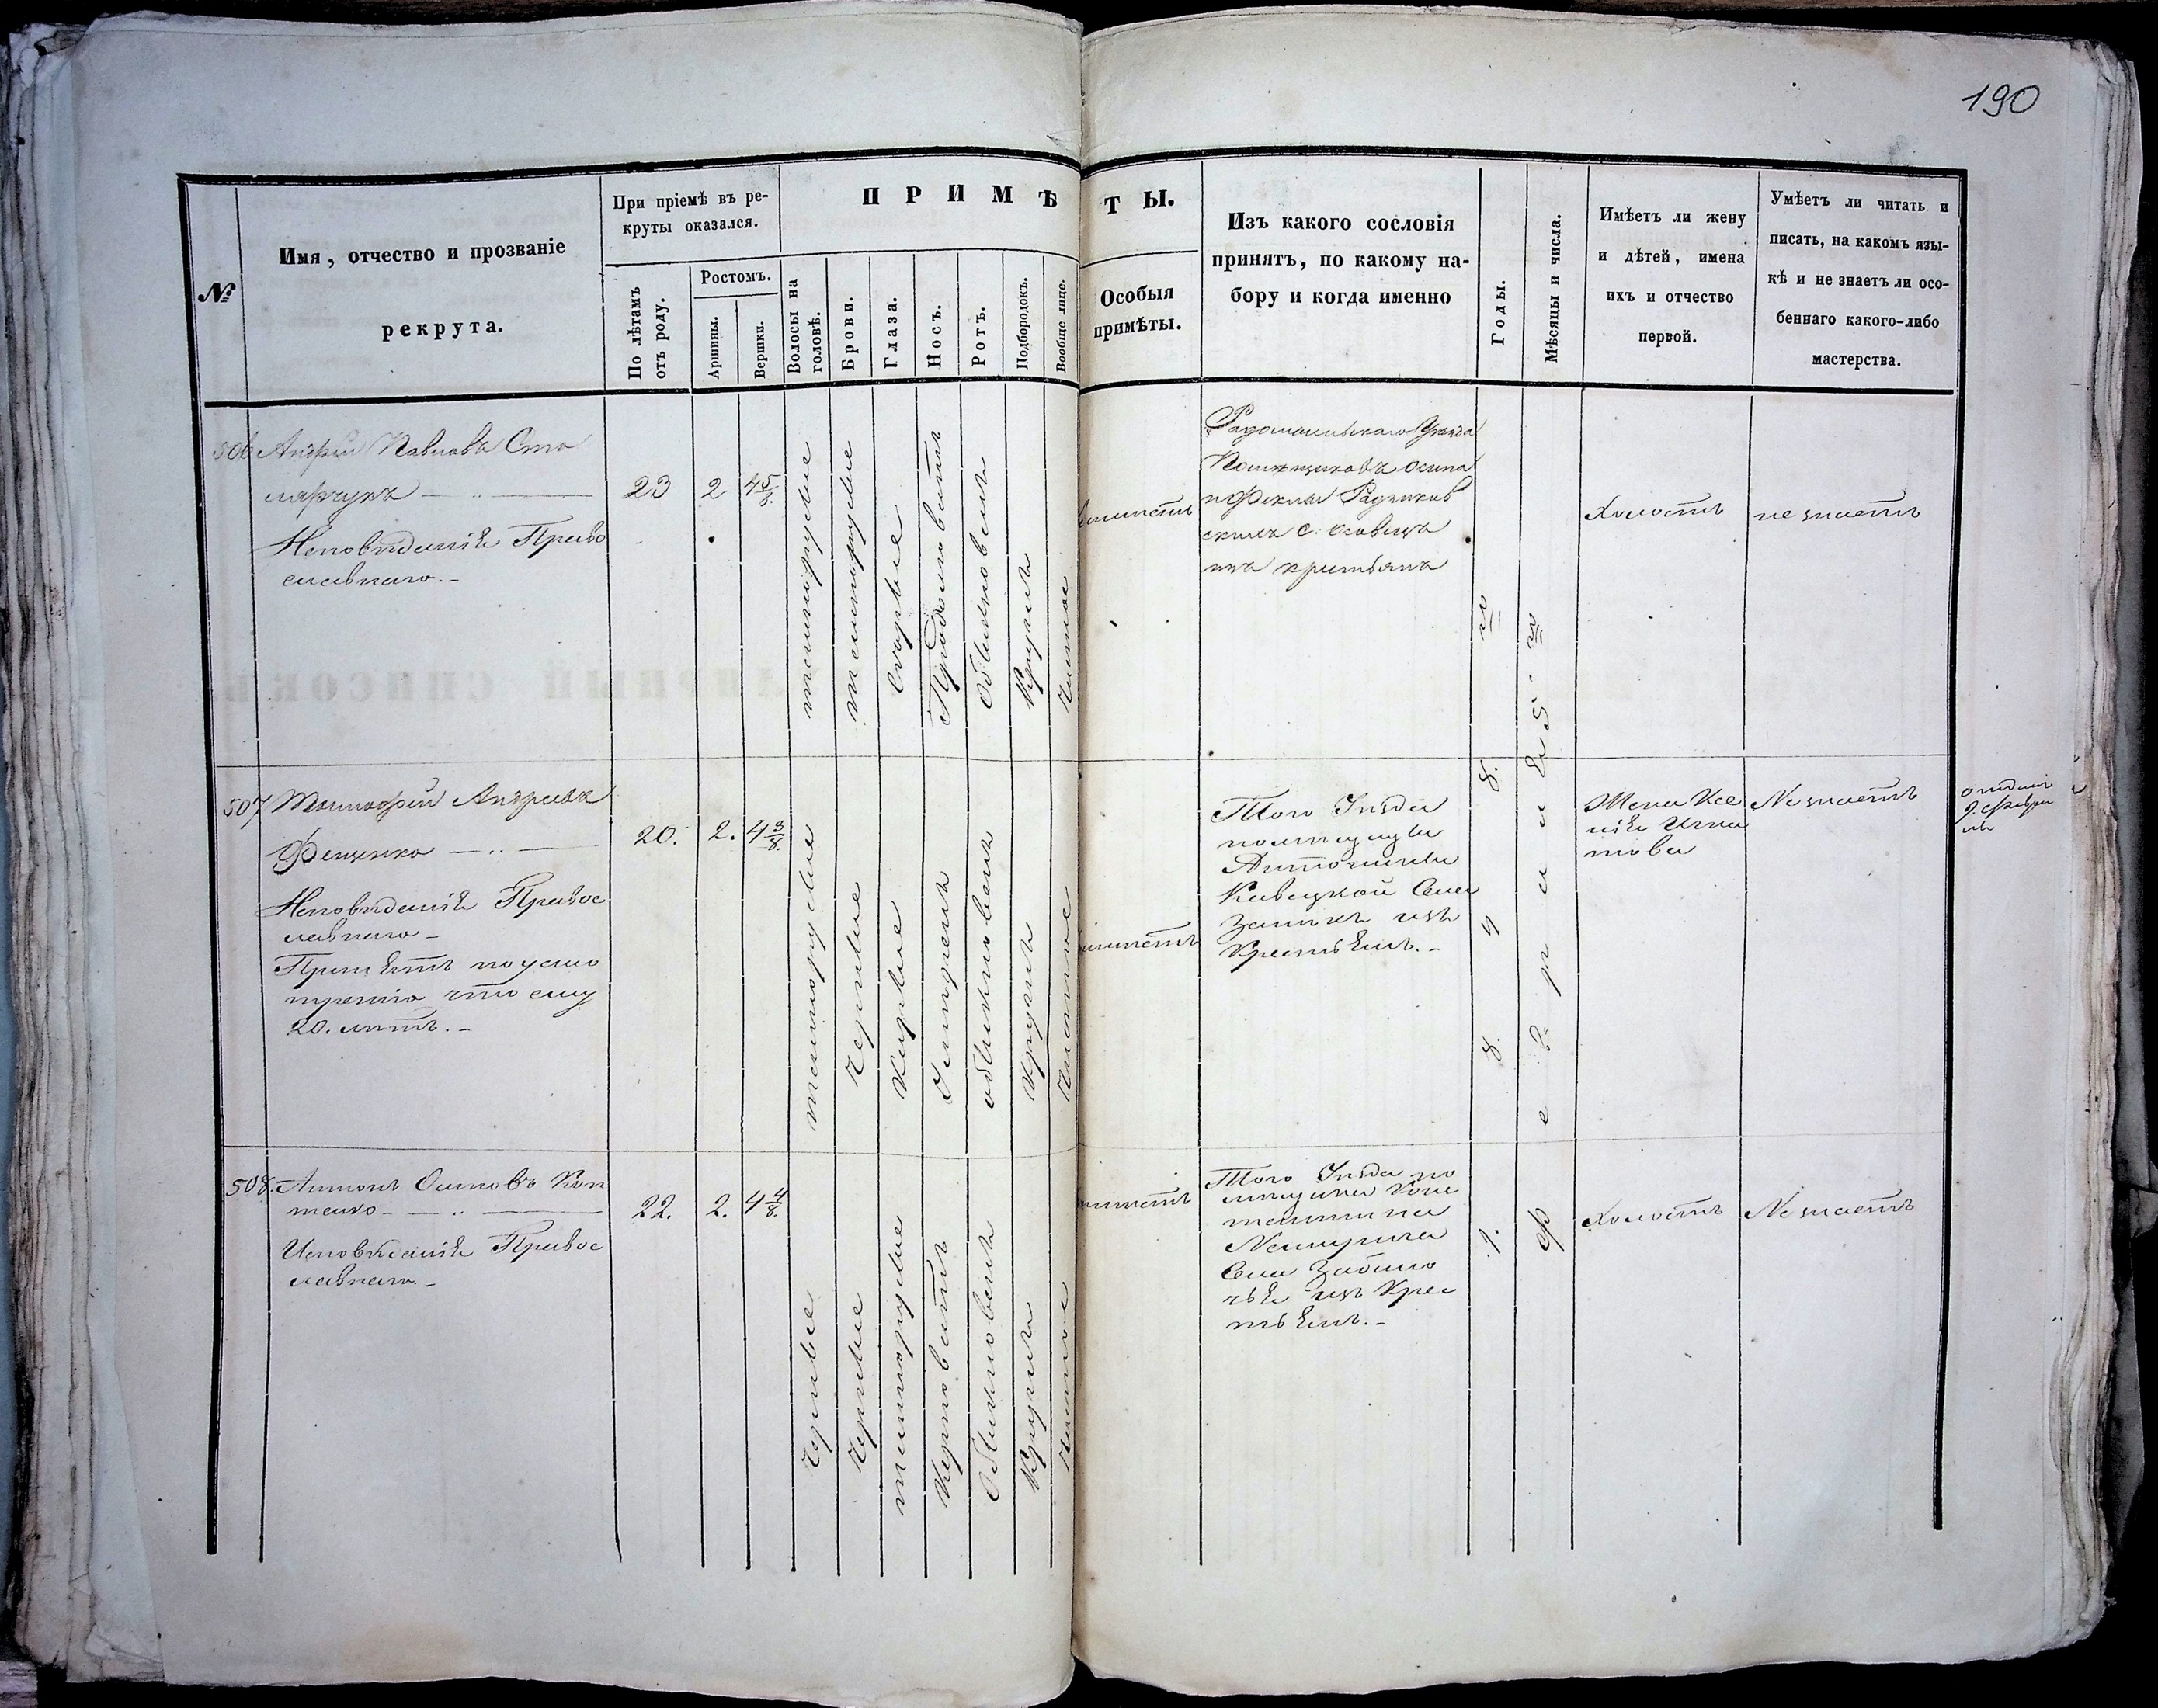 190
№
Имя, отчество и прозваніе
рекрута.
При пріемѣ въ ре-
круты оказался.
По лѣтамъ
отъ роду.
Ростомъ.
Аршины.
Вершки.
ПРИМѢТЫ.
Волосы на
головѣ.
Брови.
Глаза.
Носъ.
Ротъ.
Подбородокъ.
Вообще лице.
Особыя
примѣты.
Изъ какого сословія
принятъ, по какому на-
бору и когда именно
Годы.
Мѣсяцы и числа.
Имѣетъ ли жену
и дѣтей, имена
ихъ и отчество
первой.
Умѣетъ ли читать и
писать, на какомъ язы-
кѣ и не знаетъ ли осо-
беннаго какого-либо
мастерства.
506 Андрей Павловъ Сто
лярчукъ
Исповѣданія Право
славнаго.-
23
2
4 5/8.
темнорусые
темнорусые
Продолговатъ
Обыкновенъ
Круглъ
Чистое
Радомысльскаго Уѣзда
Помѣщиковъ Осипа
изъ крестьянъ
Холостъ
не знаетъ
507 Тимофѣй Андреевъ
Фещенко
Исповѣданія Правос
лавнаго-
Принятъ по усмо
трѣнію что ему
20. лѣтъ.-
20.
2.
4 3/8.
темнорусые
Черные
Карые
Умѣренъ
обыкновенъ
Круглъ
Чистое
Того Уѣзда
помѣщицы
Крестьянъ.-
Жена Ксе
нія Игна
това
Не знаетъ
508. Антонъ Осиповъ Кон
Исповѣданія Правос
лавнаго.-
22.
2.
4 4/8.
Черные
Черные
темнорусые
Обыкновенъ
Круглъ
Чистое
Того Уѣзда по
мѣщика Конс
тантина
Немирича
Села Забило
чья изъ Крес
тьянъ.-
Холостъ
Не знаетъ
1848го
Февраля 5.го